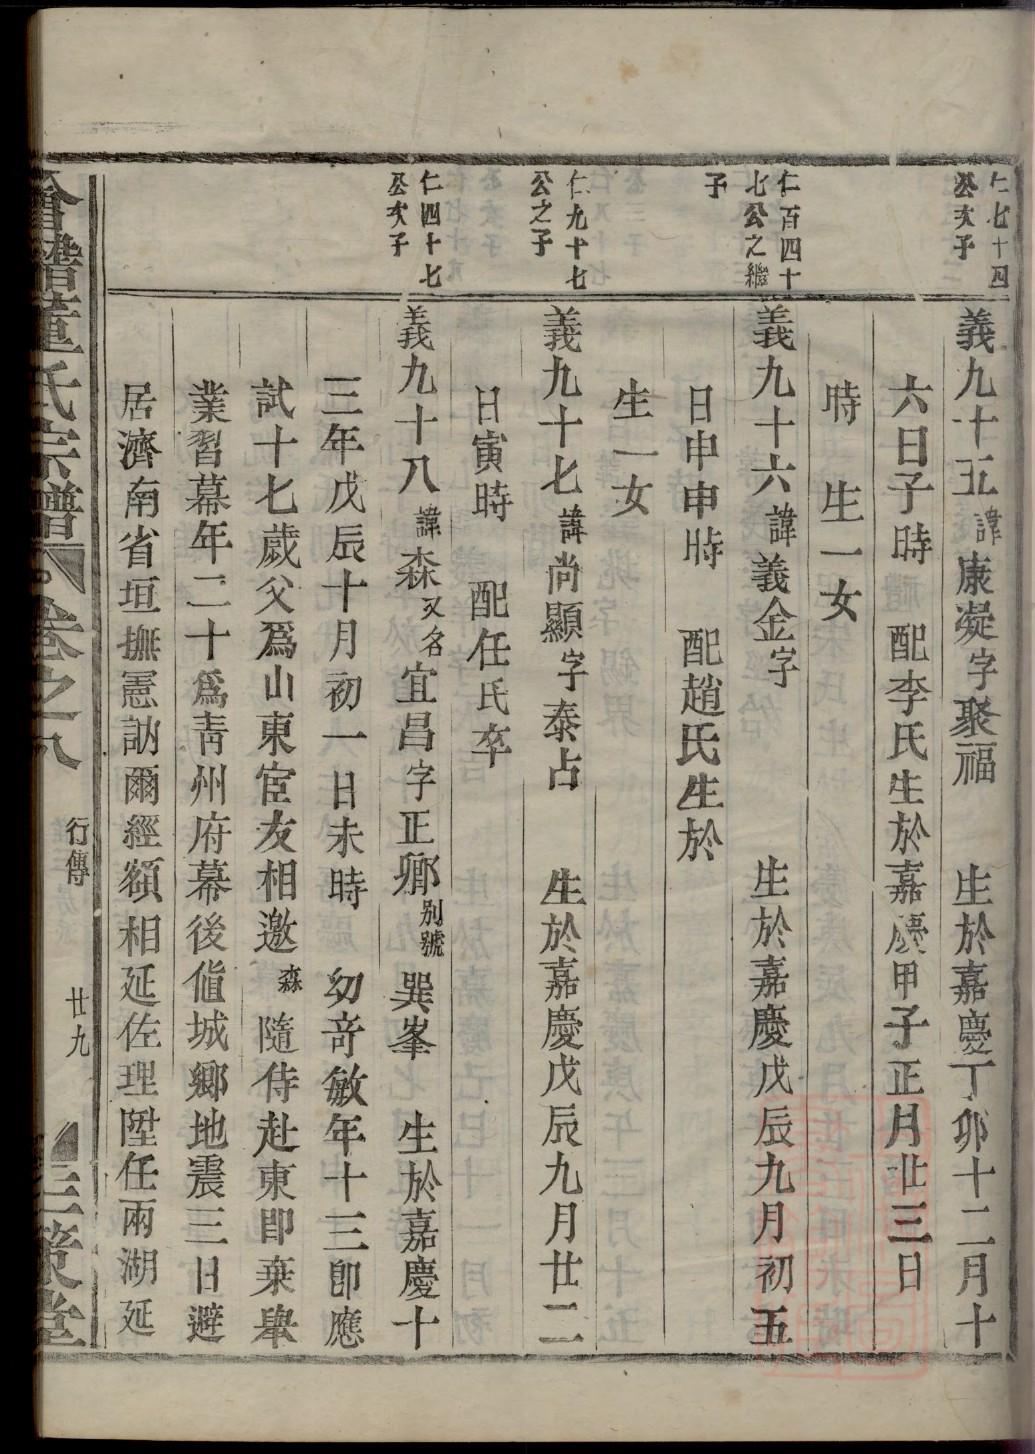 仁七十四
公次子
義九十五諱康凝字聚福　生於嘉慶丁卯十二月十
六日子時　配李氏生於嘉慶甲子正月廿三日
時　生一女
仁百四十
七公之繼
子
義九十六諱義金字　生於嘉慶戊辰九月初五
日申申時　配趙氏生於
生一女
仁九十七
公之子
義九十七諱尚顯字泰占　生於嘉慶戊辰九月廿二
日寅時　配任氏卒
仁四十七
公次子
義九十八諱森又名宜昌字正鄉別號巽峯　生於嘉慶十
三年戊辰十月初一日未時　幼竒敏年十三即應
試十七歲父爲山東宦友相邀森隨侍赴東即棄舉
業習幕年二十爲靑州府幕後値城鄉地震三日避
居濟南省垣撫憲訥爾經額相延佐理陞任兩湖延
會稽董氏宗譜
卷之十八
行傳
廿九
三策堂